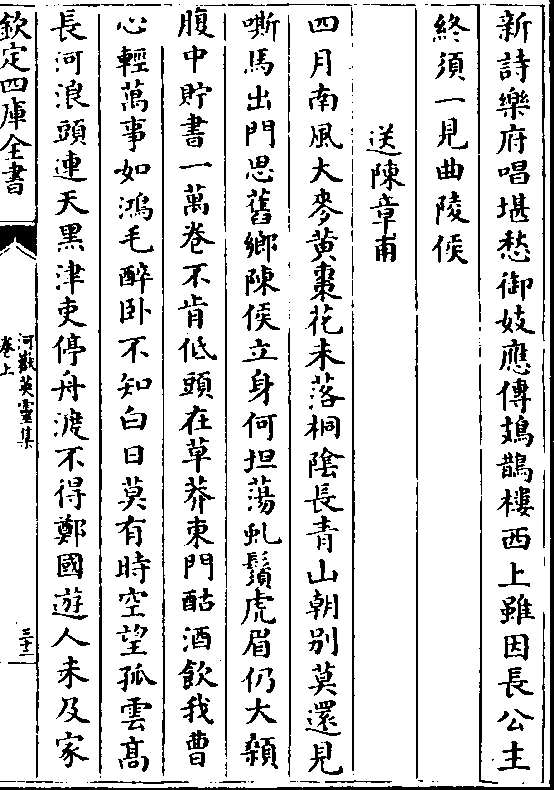 新詩樂府唱堪愁御妓應傳鳷鵲樓西上雖因長公主
終須一見曲陵侯
送陳章甫
四月南風大麥黃棗花未落桐隂長青山朝别莫還見
嘶馬出門思舊鄉陳侯立身何坦蕩虬鬚虎眉仍大顙
腹中貯書一萬卷不肯低頭在草莽東門酤酒飲我曹
心輕萬事如鴻毛醉卧不知白日莫有時空望孤雲高
長河浪頭連天黑津吏停舟渡不得鄭國遊人未及家
欽定四庫全書
河嶽英靈集
卷上
三十二